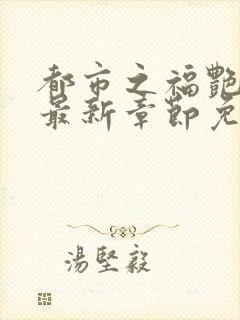 都市之福艷
最新章節免
湯堅毅